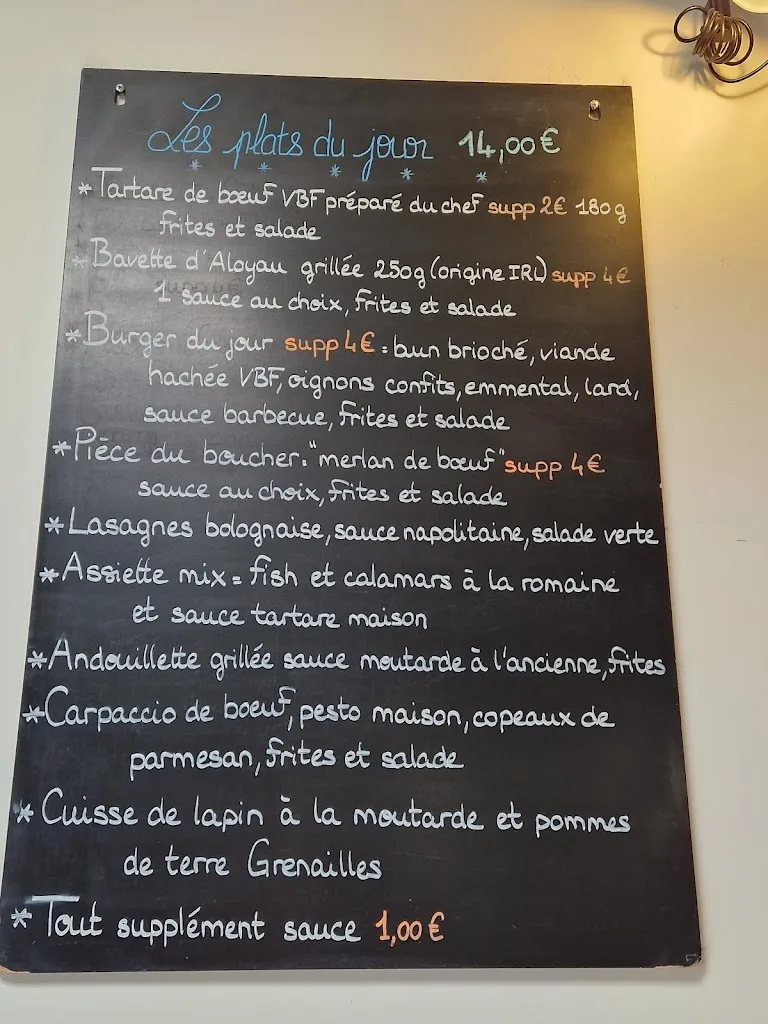 Les plats du jour 14,00€
* Tartare de bœuf VBF préparé du chef supp 2€ 180g
frites et salade
* Bavette d'Aloyau grillée 250g (origine IRL) supp 4€
1 sauce au choix, frites et salade
* Burger du jour supp 4€ : bun brioché, viande
hachée VBF, oignons confits, emmental, lard,
sauce barbecue, frites et salade
* Pièce du boucher : "merlan de bœuf" supp 4€
sauce au choix, frites et salade
* Lasagnes bolognaise, sauce napolitaine, salade verte
* Assiette mix = fish et calamars à la romaine
et sauce tartare maison
* Andouillette grillée sauce moutarde à l'ancienne, frites
* Carpaccio de boeuf, pesto maison, copeaux de
parmesan, frites et salade
* Cuisse de lapin à la moutarde et pommes
de terre Grenailles
* Tout supplément sauce 1,00€